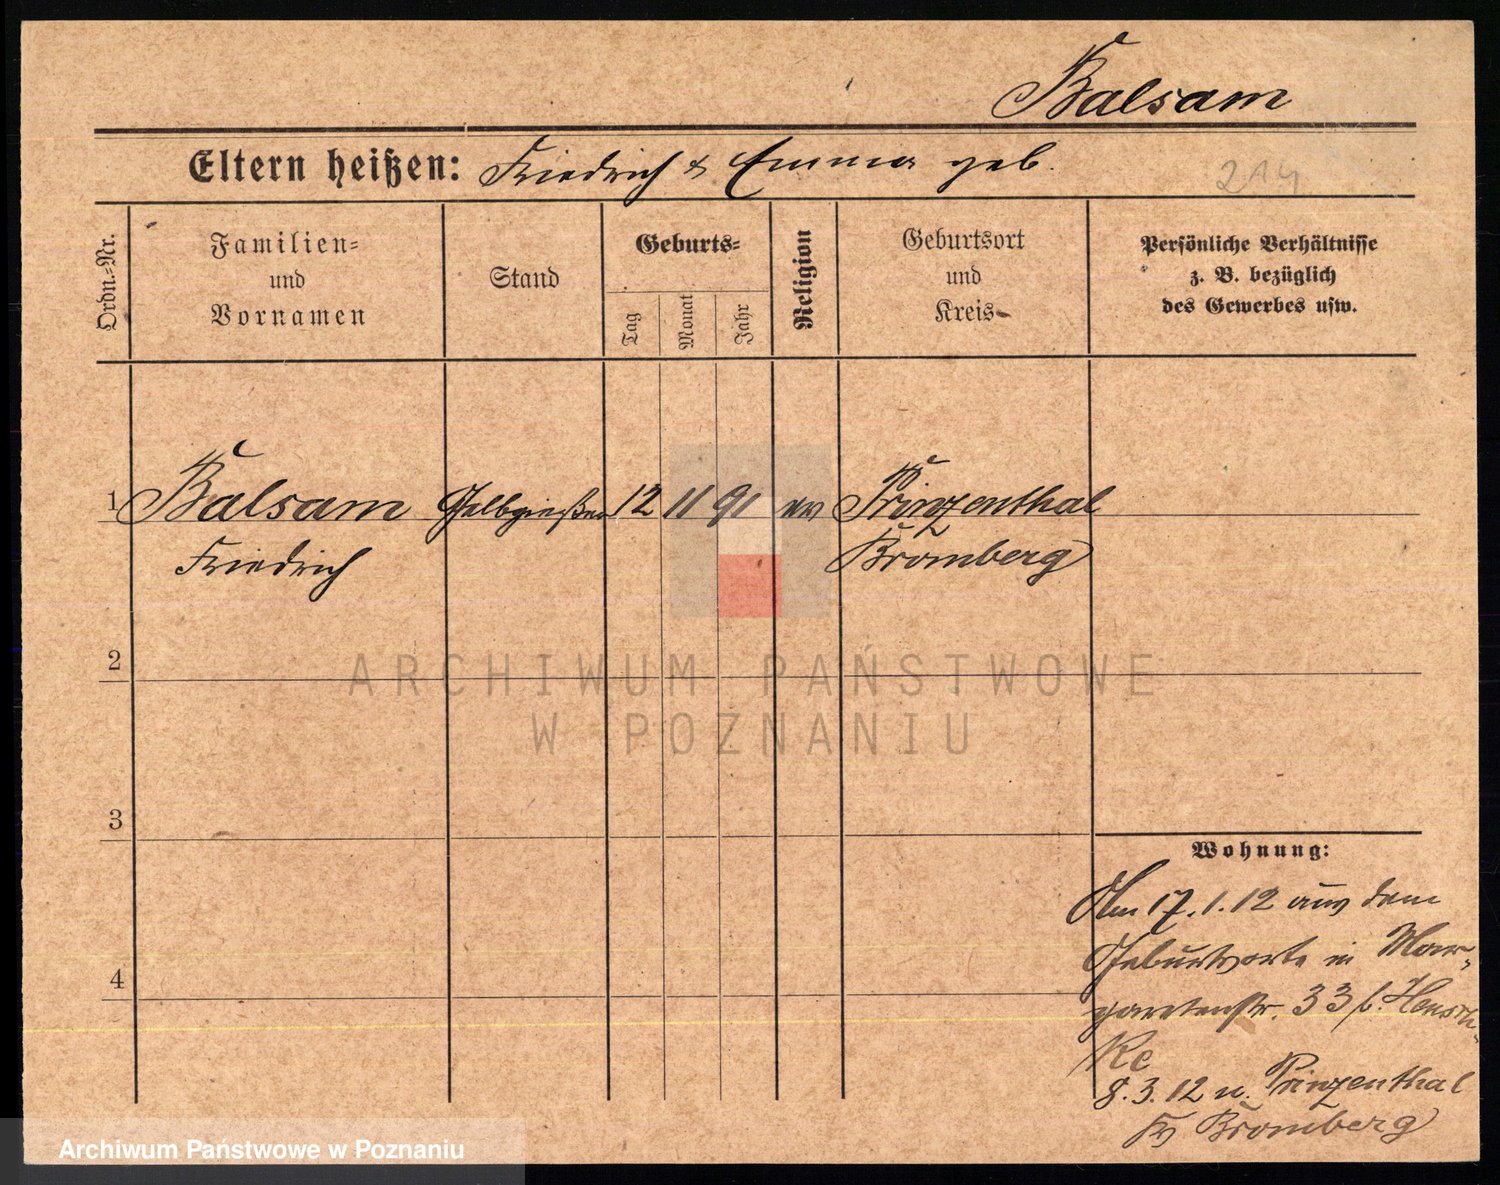 Balsam
Eltern heißen: Friedrich & Emma geb.
214
Ordn.-Nr.
Familien-
und
Vornamen
Stand
Geburts-
Tag
Monat
Jahr
Religion
Geburtsort
und
Kreis
Persönliche Verhältnisse
z. B. bezüglich
des Gewerbes usw.
1 Balsam Gelbgießer 12 11 91 ev Prinzenthal
Friedrich Bromberg
2
ARCHIWUM PAŃSTWOWE
W POZNANIU
3
Wohnung:
Am 17.1.12 aus dem
Geburtsorte in Mar-
garetenstr. 33 b.
8.3.12 n. Prinzenthal
Kr Bromberg
4
Archiwum Państwowe w Poznaniu